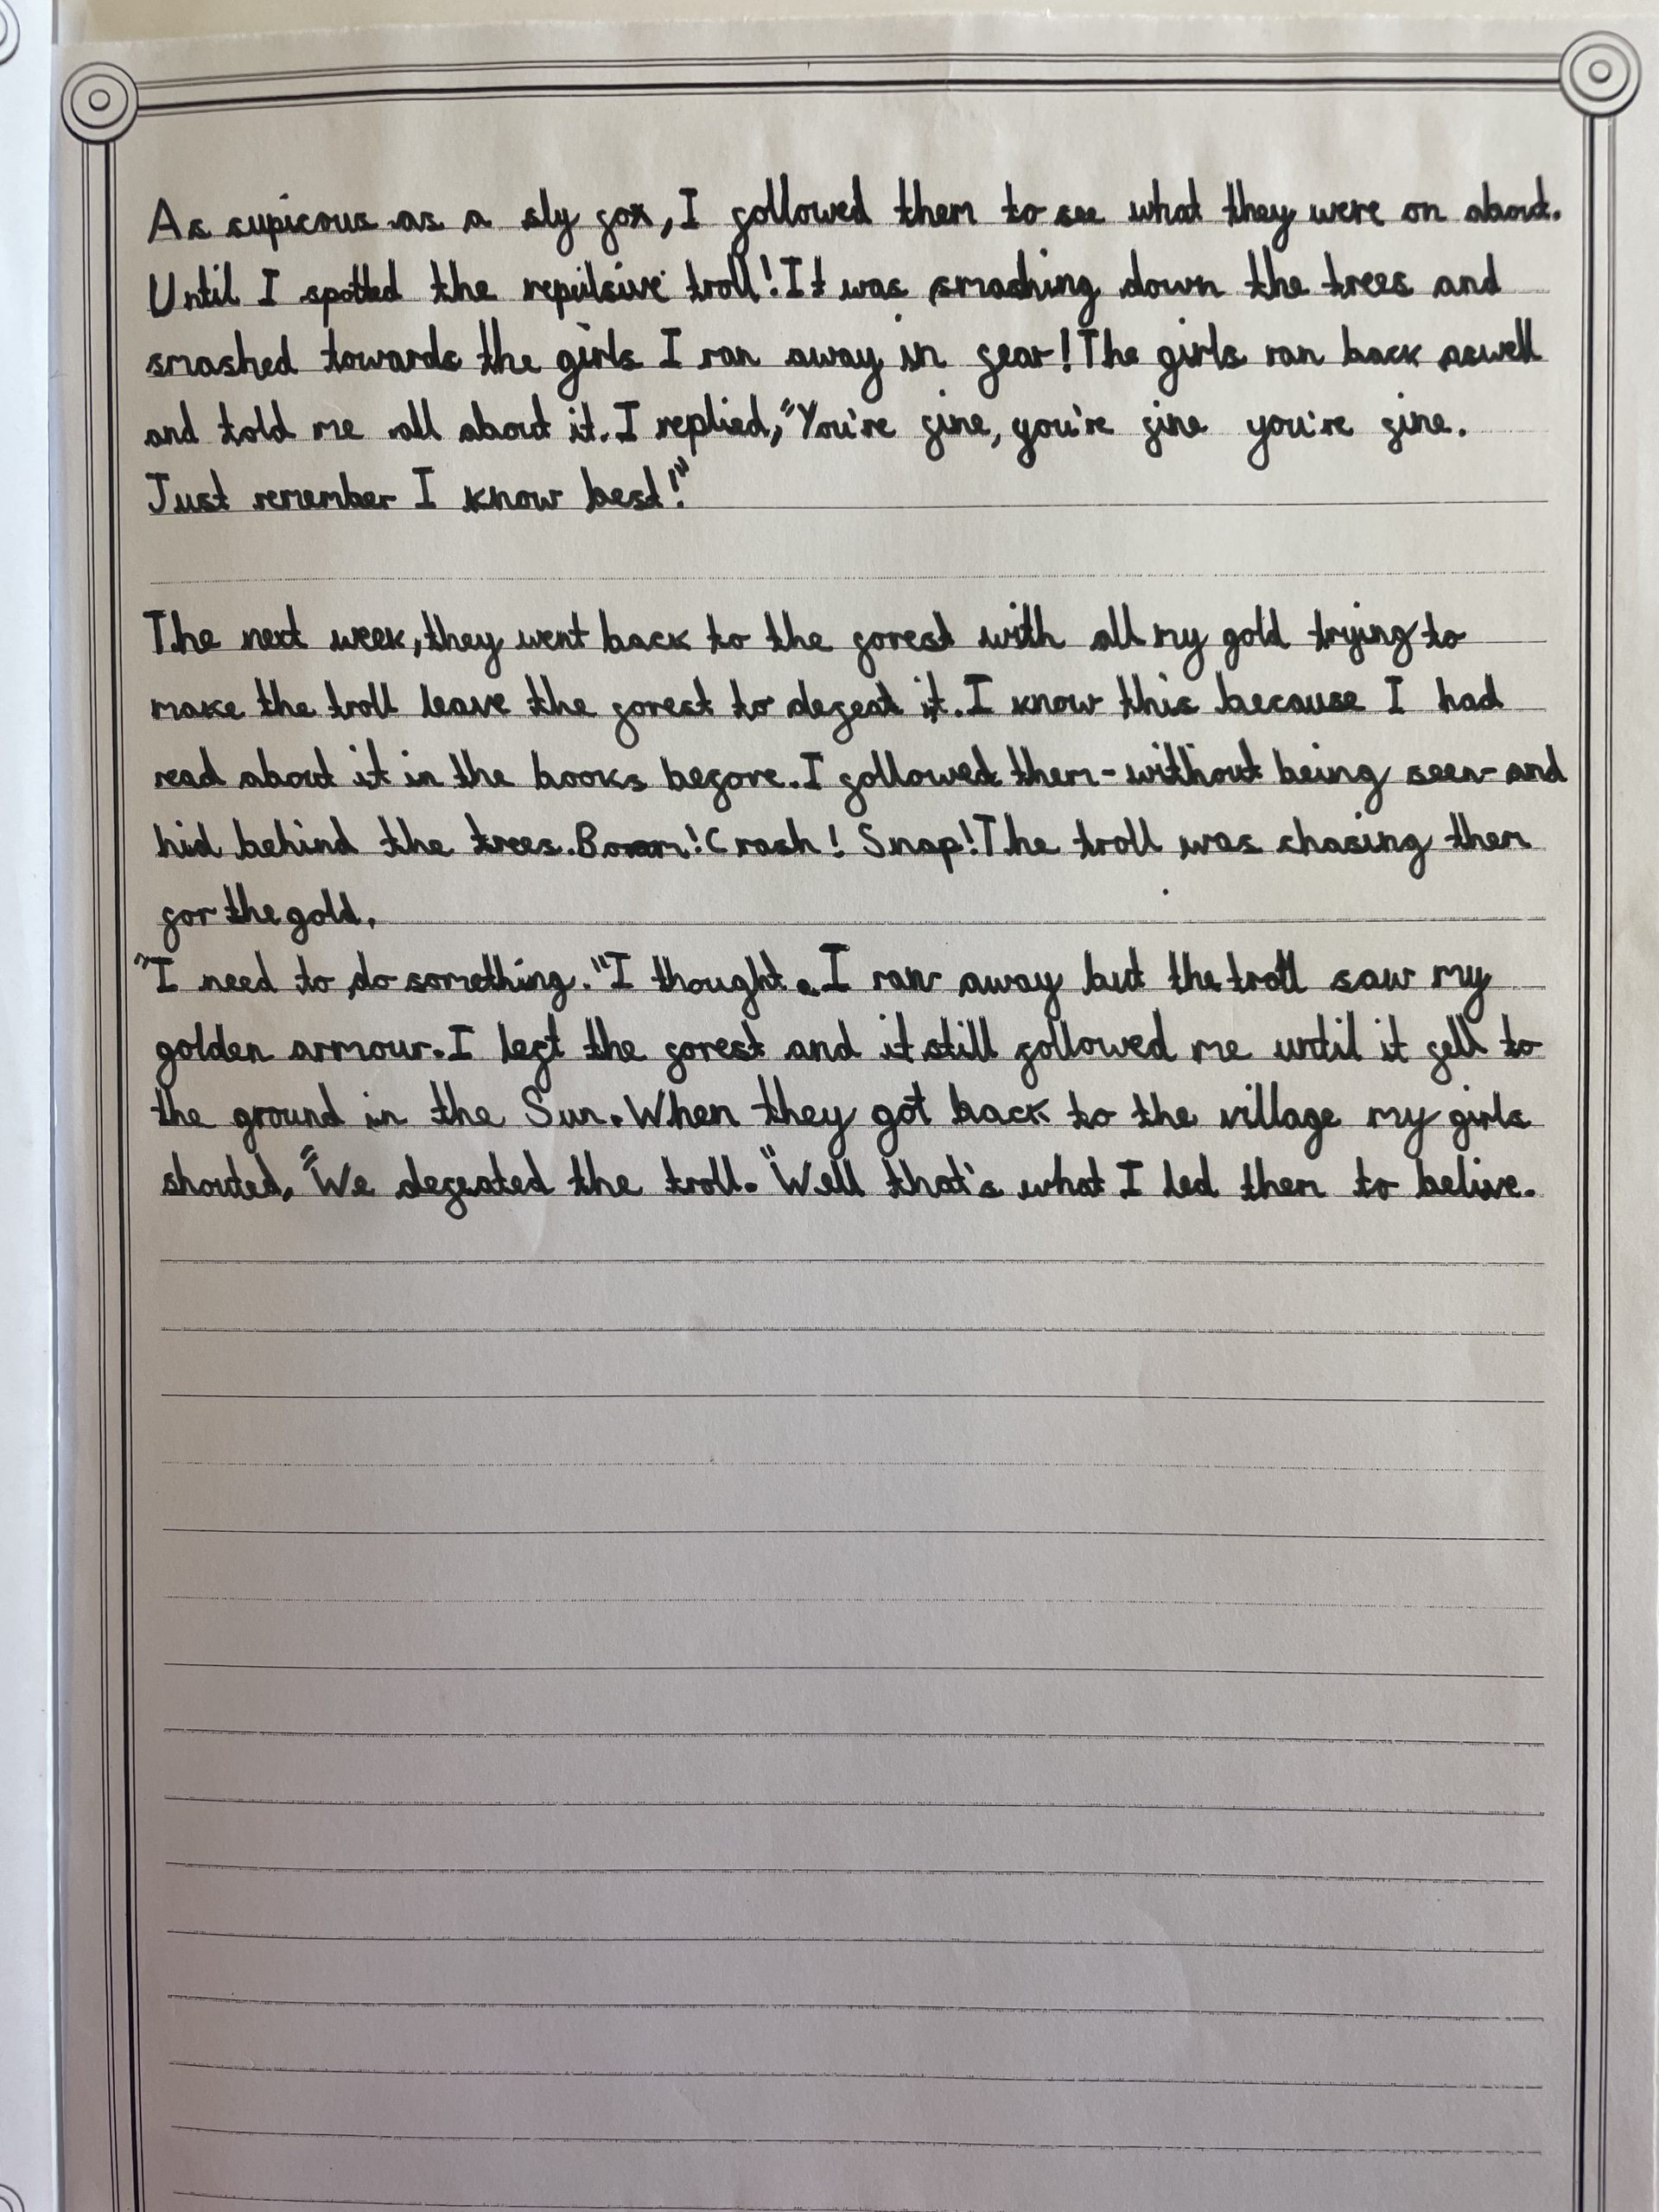 As supicous as a sly fox, I followed them to see what they were on about.
Until I spotted the repulsive troll! It was smashing down the trees and
smashed towards the girls I ran away in fear! The girls ran back aswell
and told me all about it. I replied, "You're fine, you're fine you're fine.
Just remember I know best!"
The next week, they went back to the forest with all my gold trying to
make the troll leave the forest to defeat it. I know this because I had
read about it in the books before. I followed them - without being seen - and
hid behind the trees. Boom! Crash! Snap! The troll was chasing them
for the gold.
"I need to do something." I thought. I ran away but the troll saw my
golden armour. I left the forest and it still followed me until it fell to
the ground in the Sun. When they got back to the village my girls
shouted, "We defeated the troll." Well that's what I led them to belive.